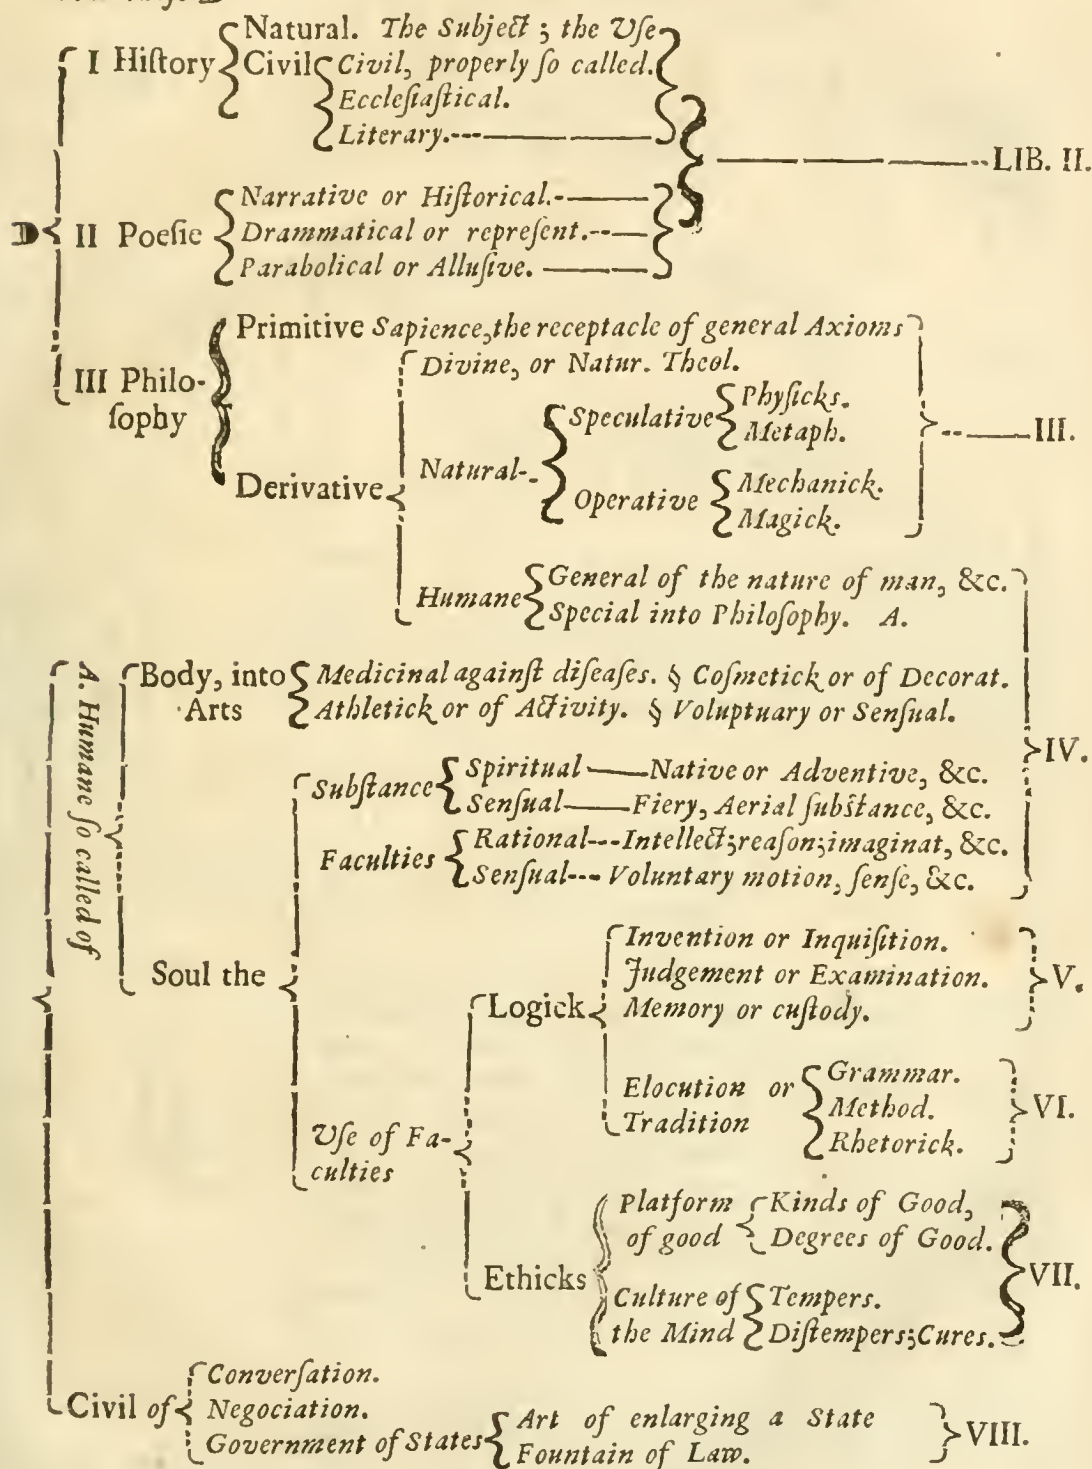 I Hiſtory
Natural. The Subject ; the Vſe
Civil
Civil, properly ſo called.
Eccleſiaſtical.
Literary.
LIB. II.
II Poeſie
Narrative or Hiſtorical.
Drammatical or repreſent.
Parabolical or Alluſive.
III Philo-
ſophy
Primitive Sapience, the receptacle of general Axioms
Derivative
Divine, or Natur. Theol.
Natural
Speculative
Phyſicks.
Metaph.
Operative
Mechanick.
Magick.
III.
Humane
General of the nature of man, &c.
Special into Philoſophy. A.
A. Humane ſo called of
Body, into
Arts
Medicinal againſt diſeaſes. § Coſmetick or of Decorat.
Athletick or of Activity. § Voluptuary or Senſual.
IV.
Soul the
Subſtance
Spiritual — Native or Adventive, &c.
Senſual — Fiery, Aerial ſubſtance, &c.
Faculties
Rational --- Intellect; reaſon; imaginat, &c.
Senſual --- Voluntary motion, ſenſe, &c.
Vſe of Fa-
culties
Logick
Invention or Inquiſition.
Judgement or Examination.
Memory or cuſtody.
V.
Elocution or
Tradition
Grammar.
Method.
Rhetorick.
VI.
Ethicks
Platform
of good
Kinds of Good,
Degrees of Good.
Culture of
the Mind
Tempers.
Diſtempers; Cures.
VII.
Civil of
Converſation.
Negociation.
Government of States
Art of enlarging a State
Fountain of Law.
VIII.